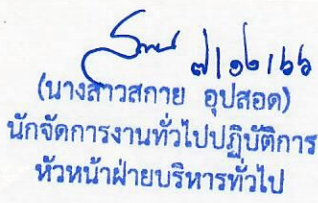 ๗/๑๒/๖๖
(นางสาวสกาย อุปสอด)
นักจัดการงานทั่วไปปฏิบัติการ
หัวหน้าฝ่ายบริหารทั่วไป